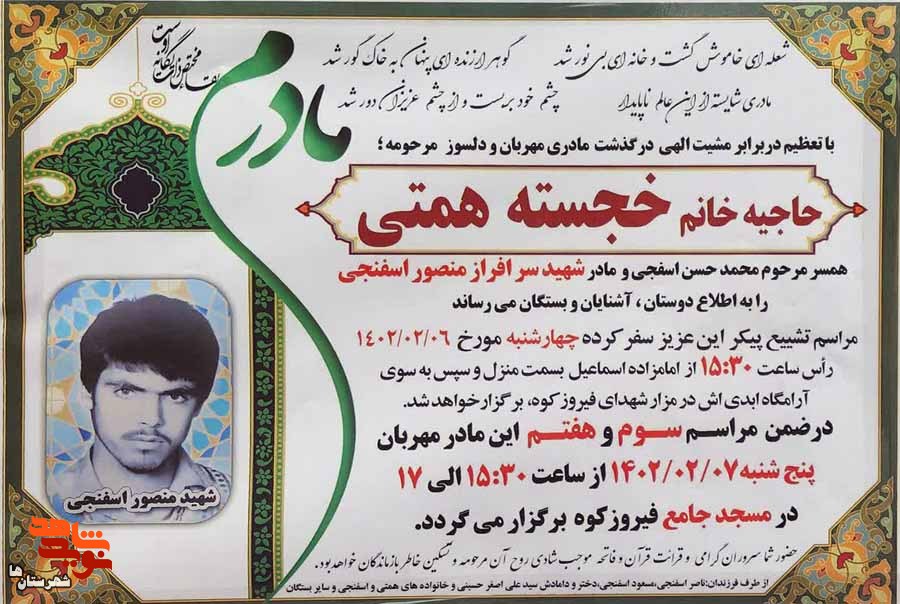 بقا مختص ذات یگانه اوست
مادرم
شعله ای خاموش گشت و خانه ای بی نور شد گوهر ارزنده ای پنهان به خاک گور شد
مادری شایسته از این عالم ناپایدار چشم خود بربست و از چشم عزیزان دور شد
با تعظیم در برابر مشیت الهی درگذشت مادری مهربان و دلسوز مرحومه ؛
حاجیه خانم خجسته همتی
همسر مرحوم محمد حسن اسفجی و مادر شهید سرافراز منصور اسفنجی
را به اطلاع دوستان ، آشنایان و بستگان می رساند
مراسم تشییع پیکر این عزیز سفر کرده چهارشنبه مورخ ۱۴۰۲/۰۲/۰۶
رأس ساعت ۱۵:۳۰ از امامزاده اسماعیل بسمت منزل و سپس به سوی
آرامگاه ابدی اش در مزار شهدای فیروز کوه، برگزار خواهد شد.
درضمن مراسم سوم و هفتم این مادر مهربان
پنج شنبه ۱۴۰۲/۰۲/۰۷ از ساعت ۱۵:۳۰ الی ۱۷
در مسجد جامع فیروز کوه برگزار می گردد.
حضور شما سروران گرامی و قرائت قرآن و فاتحه موجب شادی روح آن مرحومه و تسکین خاطر بازماندگان خواهد بود.
از طرف فرزندان: ناصر اسفنجی، مسعود اسفنجی، دختر و دامادش سید علی اصغر حسینی و خانواده های همتی و اسفنجی و سایر بستگان
شهید منصور اسفنجی
نوید شاهد
شهرستان ها